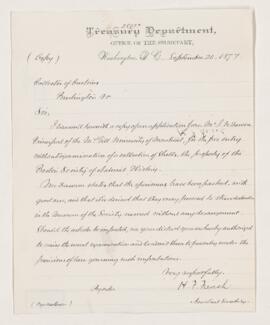 Treasury Department,
OFFICE OF THE SECRETARY,
(Copy) Washington, D. C. September 20, 1877
Collector of Customs
Burlington Vt
Sir,
I transmit herewith a copy of an application from Mr. J. F.
of the McGill University of Montreal, for the free entry
without examination of a collection of Shells, the property of the
Boston Society of Natural History.
Mr. states that the specimens have been packed with
good care, and that it is desired that they may proceed to their destination
in the Museum of the Society named without any derangement.
Should the articles be imported, as you are hereby authorized
to waive the usual examination and to admit them to free entry under the
provisions of law governing such importations.
Very respectfully,
H. F. French
Assistant Secretary.